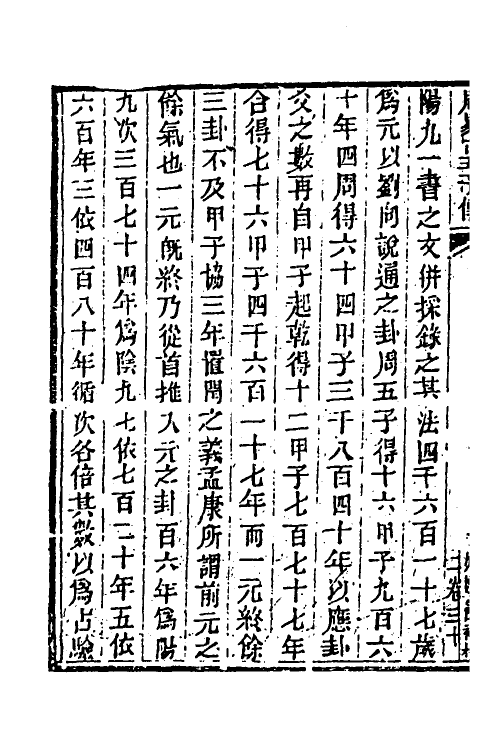 陽九一書之文併採錄之其法四千六百一十七歲
爲元以劉向說通之卦周五子得十六甲子九百六
十年四周得六十四甲子三千八百四十年以應卦
爻之數再自甲子起乾得十二甲子七百七十七年
合得七十六甲子四千六百一十七年而一元終餘
三卦不及甲子協三年催閏之義孟康所謂前元之
餘氣也一元旣終乃從首推入元之卦百六年爲陽
九次三百七十四年爲陰九七依七百二十年五依
六百年三依四百八十年循次各倍其數以爲占驗
卷三十